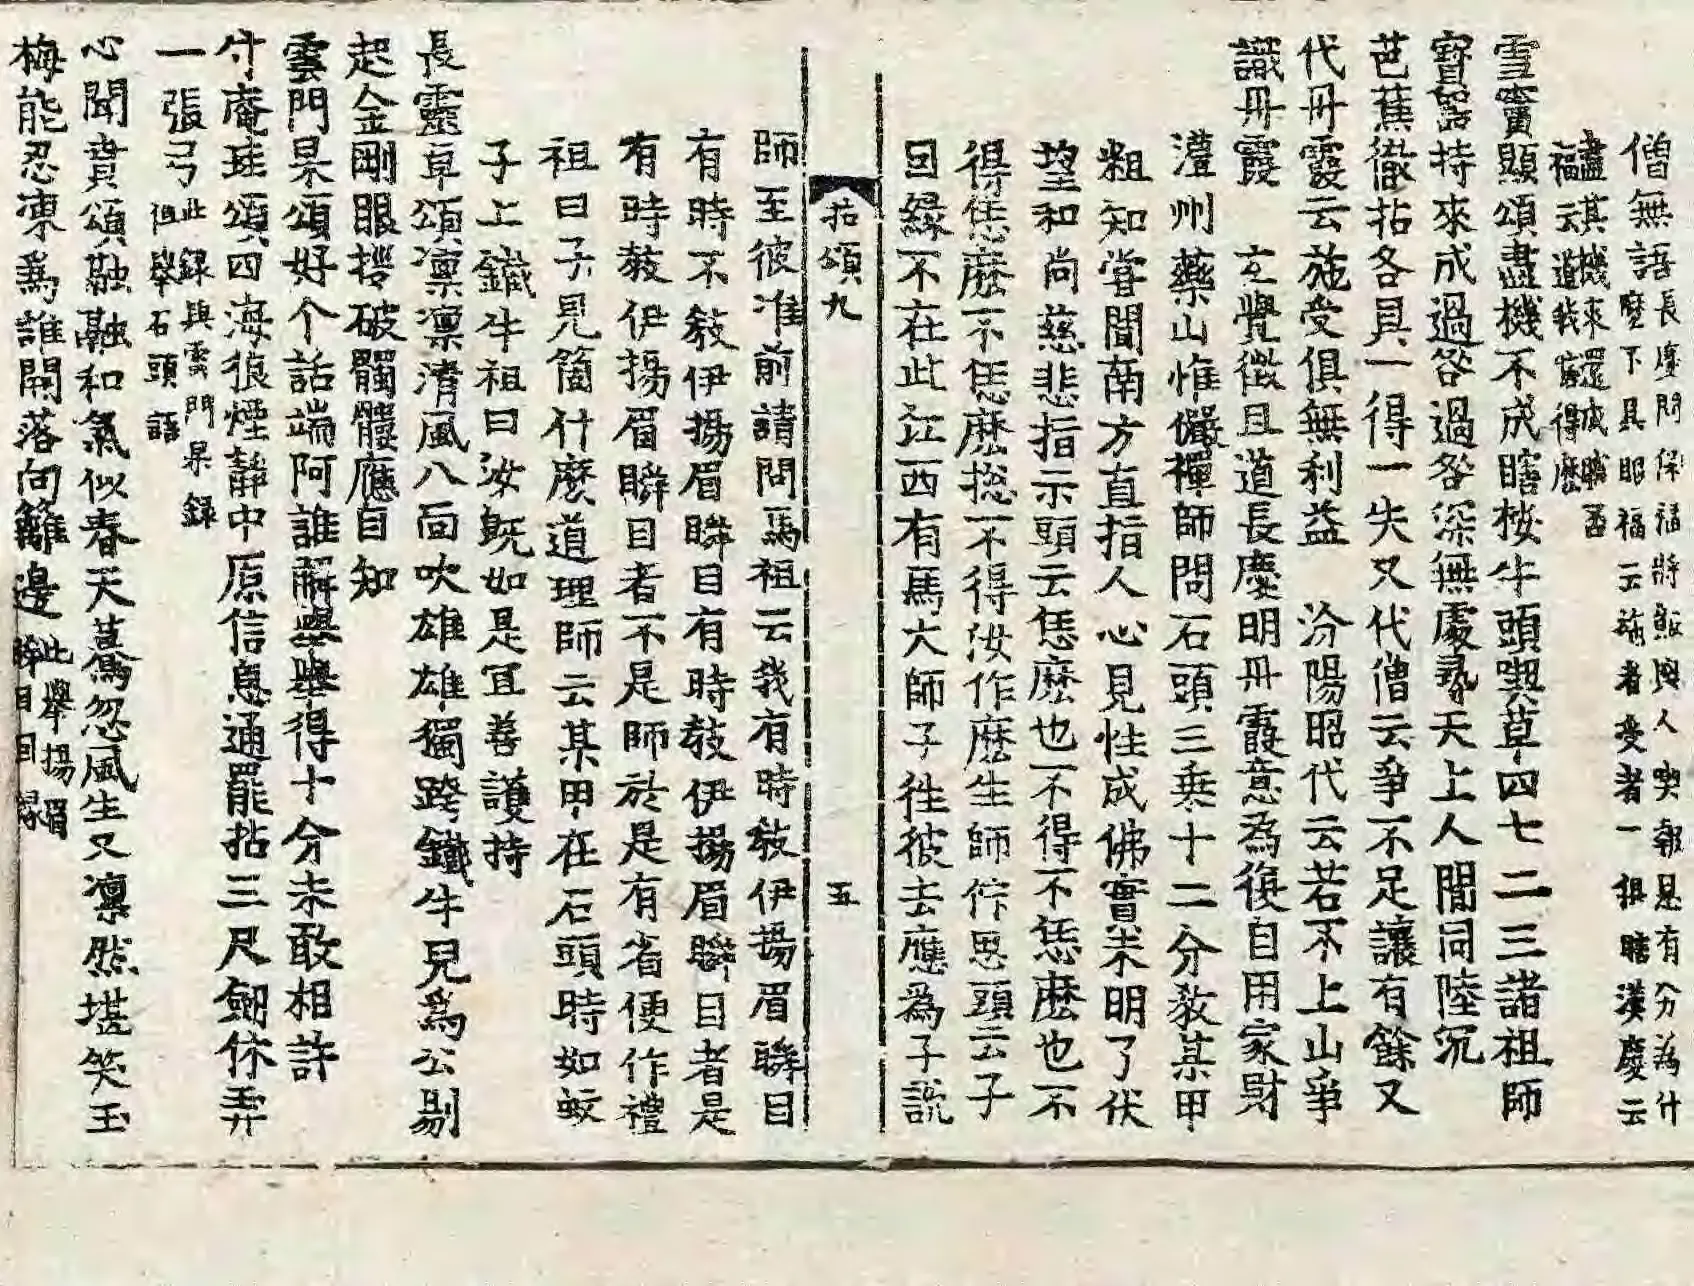 僧無語
長慶問保福將飯與人喫報恩有分為什
麼不具眼福云施者受者一俱瞎漢慶云
盡其機來還成瞎否
福云道我瞎得麼
雪竇顯頌盡機不成瞎按牛頭喫草四七二三諸祖師
寶器持來成過咎過咎深無處尋天上人間同陸沉
芭蕉徹拈各具一得一失又代僧云爭不足讓有餘又
代丹霞云施受俱無利益　汾陽昭代云若不上山爭
識丹霞　玄覺徵且道長慶明丹霞意為復自用家財
澧州藥山惟儼禪師問石頭三乘十二分教某甲
粗知嘗聞南方直指人心見性成佛實未明了伏
望和尚慈悲指示頭云恁麼也不得不恁麼也不
得恁麼不恁麼揔不得汝作麼生師佇思頭云子
因緣不在此江西有馬大師子徃彼去應爲子說
拈頌九　五
師至彼准前請問馬祖云我有時敎伊揚眉瞬目
有時不敎伊揚眉瞬目有時敎伊揚眉瞬目者是
有時敎伊揚眉瞬目者不是師於是有省便作禮
祖曰子見箇什麽道理師云某甲在石頭時如蚊
子上鐵牛祖曰汝旣如是冝善護持
長靈卓頌凜凜清風八面吹雄雄獨跨鐵牛兒爲公剔
起金剛眼拶破髑髏應自知
雲門杲頌好个話端阿誰解舉舉得十分未敢相許
守庵珪頌四海狼煙靜中原信息通罷拈三尺劒休弄
一張弓
此錄與雲門杲錄
但舉石頭語
心聞賁頌融融和氣似春天驀忽風生又凜然堪笑玉
梅能忍凍爲誰開落向籬邊
此舉揚眉
瞬目因緣